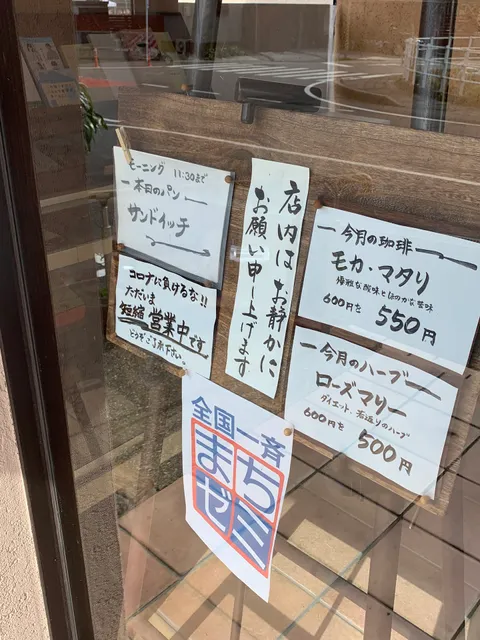 モーニング 11:30まで
本日のパン
サンドイッチ
コロナに負けるな!!
ただいま
短縮営業中です
どうぞご了承下さい。
店内はお静かに
お願い申し上げます
今月の珈琲
モカ・マタリ
優雅な酸味とほのかな苦味
600円を 550円
今月のハーブ
ローズマリー
ダイエット・若返りのハーブ
600円を 500円
全国一斉
まち
ゼミ